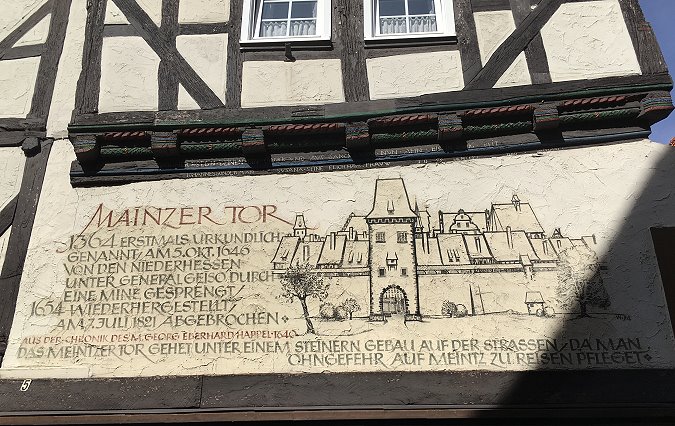 MAINZER TOR
1364 ERSTMALS URKUNDLICH
GENANNT / AM 5. OKT. 1646
VON DEN NIEDERHESSEN
UNTER GENERAL GEISO DURCH
EINE MINE GESPRENGT /
1654 WIEDERHERGESTELLT /
AM 7. JULI 1821 ABGEBROCHEN
AUS DER CHRONIK DES M. GEORG EBERHARD HAPPEL · 1640
DAS MEINTZER TOR GEHET UNTER EINEM STEINERN GEBAU AUF DER STRASSEN / DA MAN
OHNGEFEHR AUF MEINTZ ZU REISEN PFLEGET
5